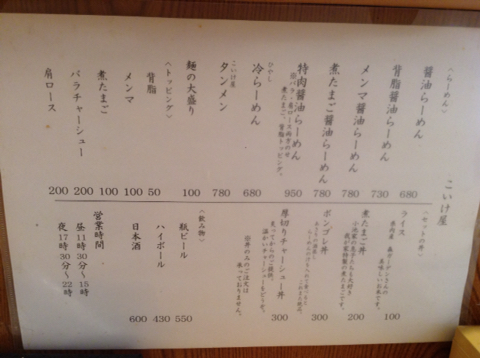 こいけ屋
〈らーめん〉
醤油らーめん 680
背脂醤油らーめん 730
メンマ醤油らーめん 780
煮たまご醤油らーめん 780
特肉醤油らーめん 950
冷らーめん 680
ひやし
こいけ屋
タンメン 780
麺の大盛り 100
〈トッピング〉
背脂 50
メンマ 100
煮たまご 100
バラチャーシュー 200
肩ロース 200
〈セットの丼〉
ライス 100
煮たまご丼 200
ボンゴレ丼 300
厚切りチャーシュー丼 300
炙ってからのご提供。
温かいチャーシューをどうぞ。
丼丼のみのご注文は
承っておりません。
〈飲み物〉
瓶ビール 550
ハイボール 430
日本酒 600
営業時間
昼11時30分〜15時
夜17時30分〜22時